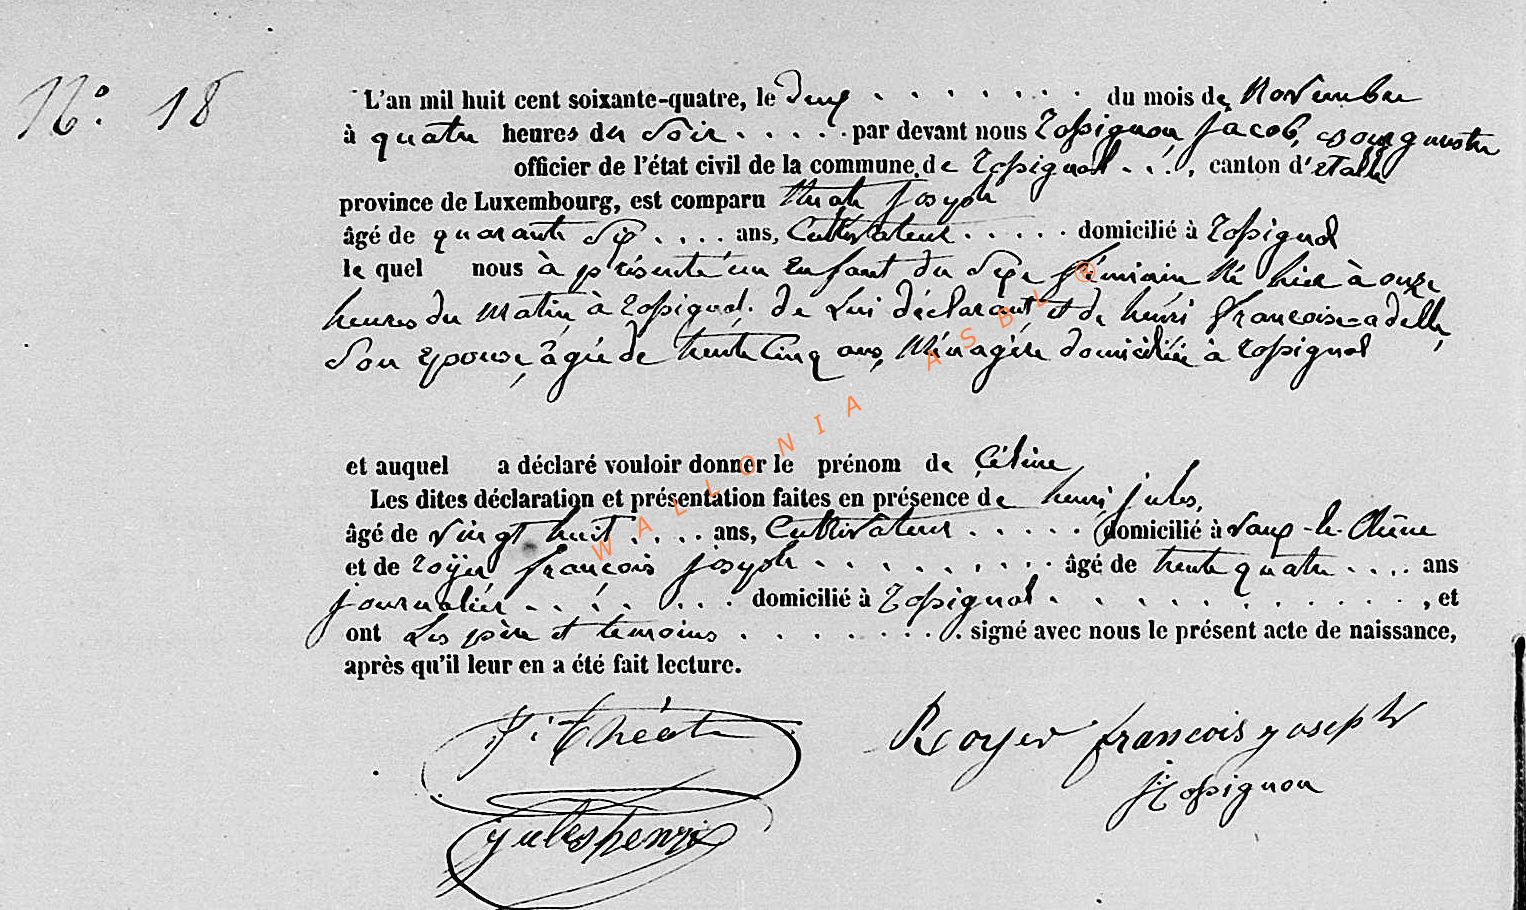 N.° 18
L'an mil huit cent soixante-quatre, le deux . . . . . . . du mois de novembre
à quatre heures du soir . . . . . par devant nous Rossignon Jacob, Bourgmestre
officier de l'état civil de la commune de Rossignol . . . , canton d'etalle
province de Luxembourg, est comparu théate joseph
âgé de quarante six . . . . ans, Cultivateur . . . . . domicilié à Rossignol
le quel nous à présenté un enfant du sexe féminin né hier à onze
heures du matin à rossignol. de lui déclarant et de henri françoise-adelle,
son epouse, âgée de trente cinq ans, ménagère domiciliée à rossignol
et auquel a déclaré vouloir donner le prénom de Céline
Les dites déclaration et présentation faites en présence de henri jules,
âgé de vingt huit . . . . ans, Cultivateur . . . . . domicilié à vaux-le-Chêne
et de royer françois joseph . . . . . . . . . . âgé de trente quatre . . . . ans
journalier . . . . . . . domicilié à Rossignol . . . . . . . . . . . . , et
ont les père et temoins . . . . . . . . signé avec nous le présent acte de naissance,
après qu'il leur en a été fait lecture.
J. théate
Royer françois joseph
J Rossignon
jules henri
WALLONIA ASBL ®